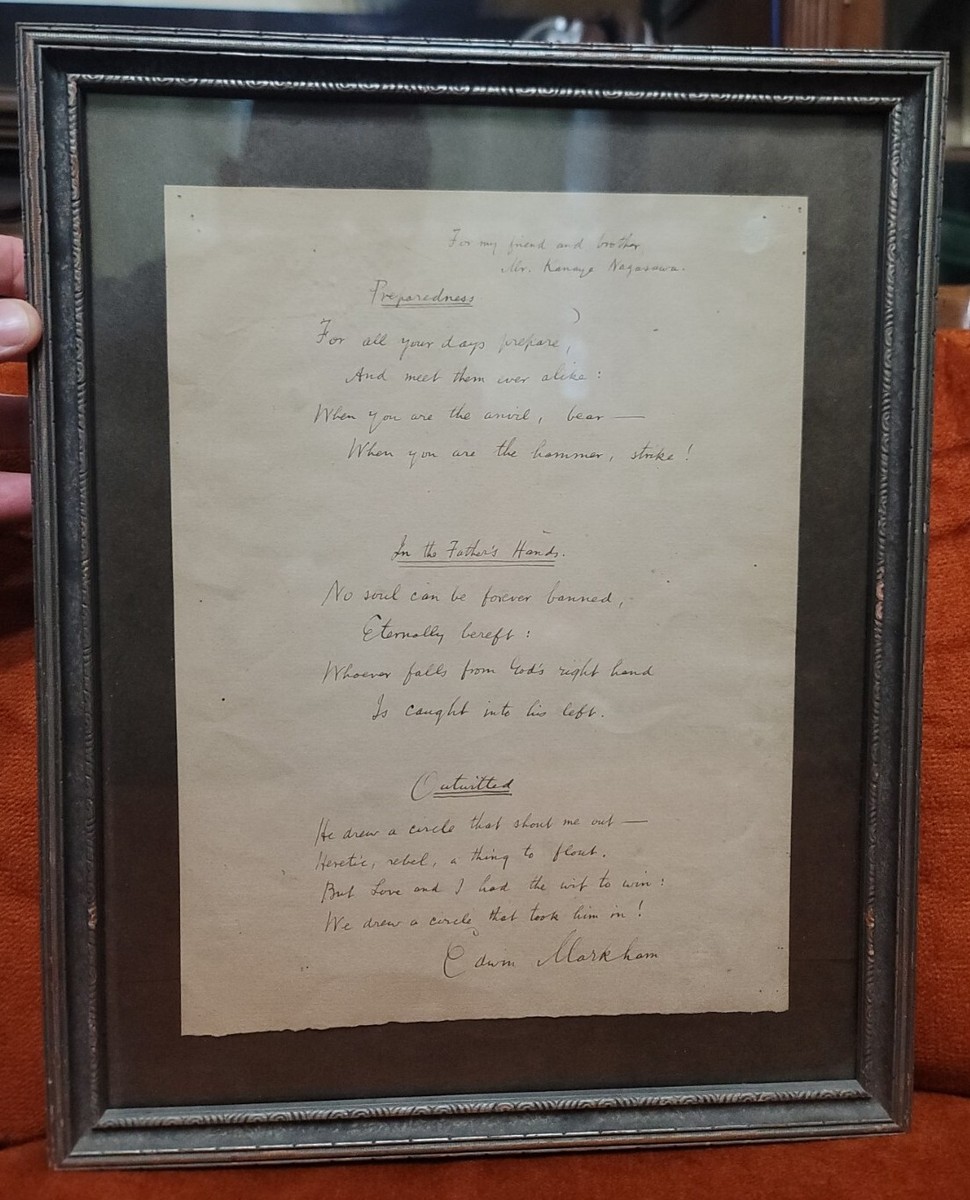 For my friend and brother
Mr. Kanaye Nagasawa.
Preparedness
For all your days prepare,
And meet them ever alike:
When you are the anvil, bear —
When you are the hammer, strike!
In the Father's Hands.
No soul can be forever banned,
Eternally bereft:
Whoever falls from God's right hand
Is caught into his left.
Outwitted
He drew a circle that shout me out —
Heretic, rebel, a thing to flout.
But Love and I had the wit to win:
We drew a circle that took him in!
Edwin Markham